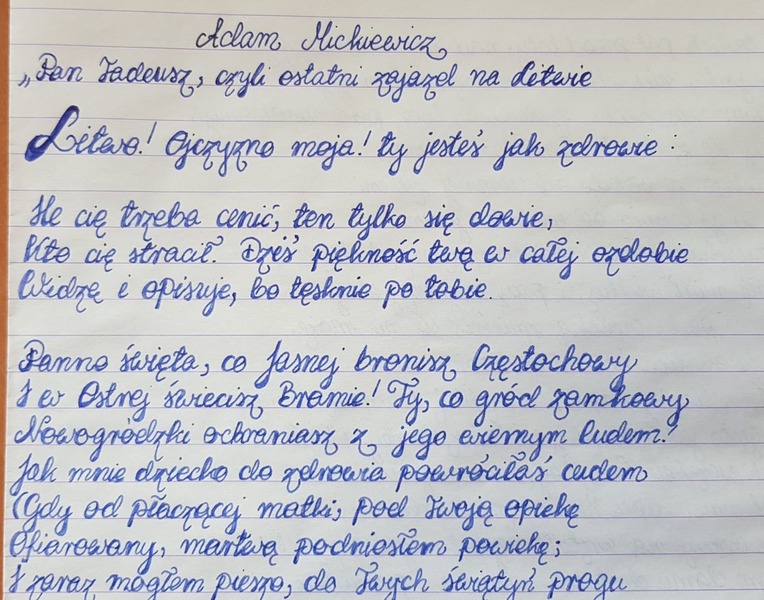 Adam Mickiewicz
„Pan Tadeusz, czyli ostatni zajazd na Litwie
Litwo! Ojczyzno moja! ty jesteś jak zdrowie :
Ile cię trzeba cenić, ten tylko się dowie,
Kto cię stracił. Dziś piękność twą w całej ozdobie
Widzę i opisuję, bo tęsknię po tobie.
Panno święta, co Jasnej bronisz Częstochowy
I w Ostrej świecisz Bramie! Ty, co gród zamkowy
Nowogródzki ochraniasz z jego wiernym ludem!
Jak mnie dziecko do zdrowia powróciłaś cudem
(Gdy od płaczącej matki, pod Twoją opiekę
Ofiarowany, martwą podniosłem powiekę;
I zaraz mogłem pieszo, do Twych świątyń progu